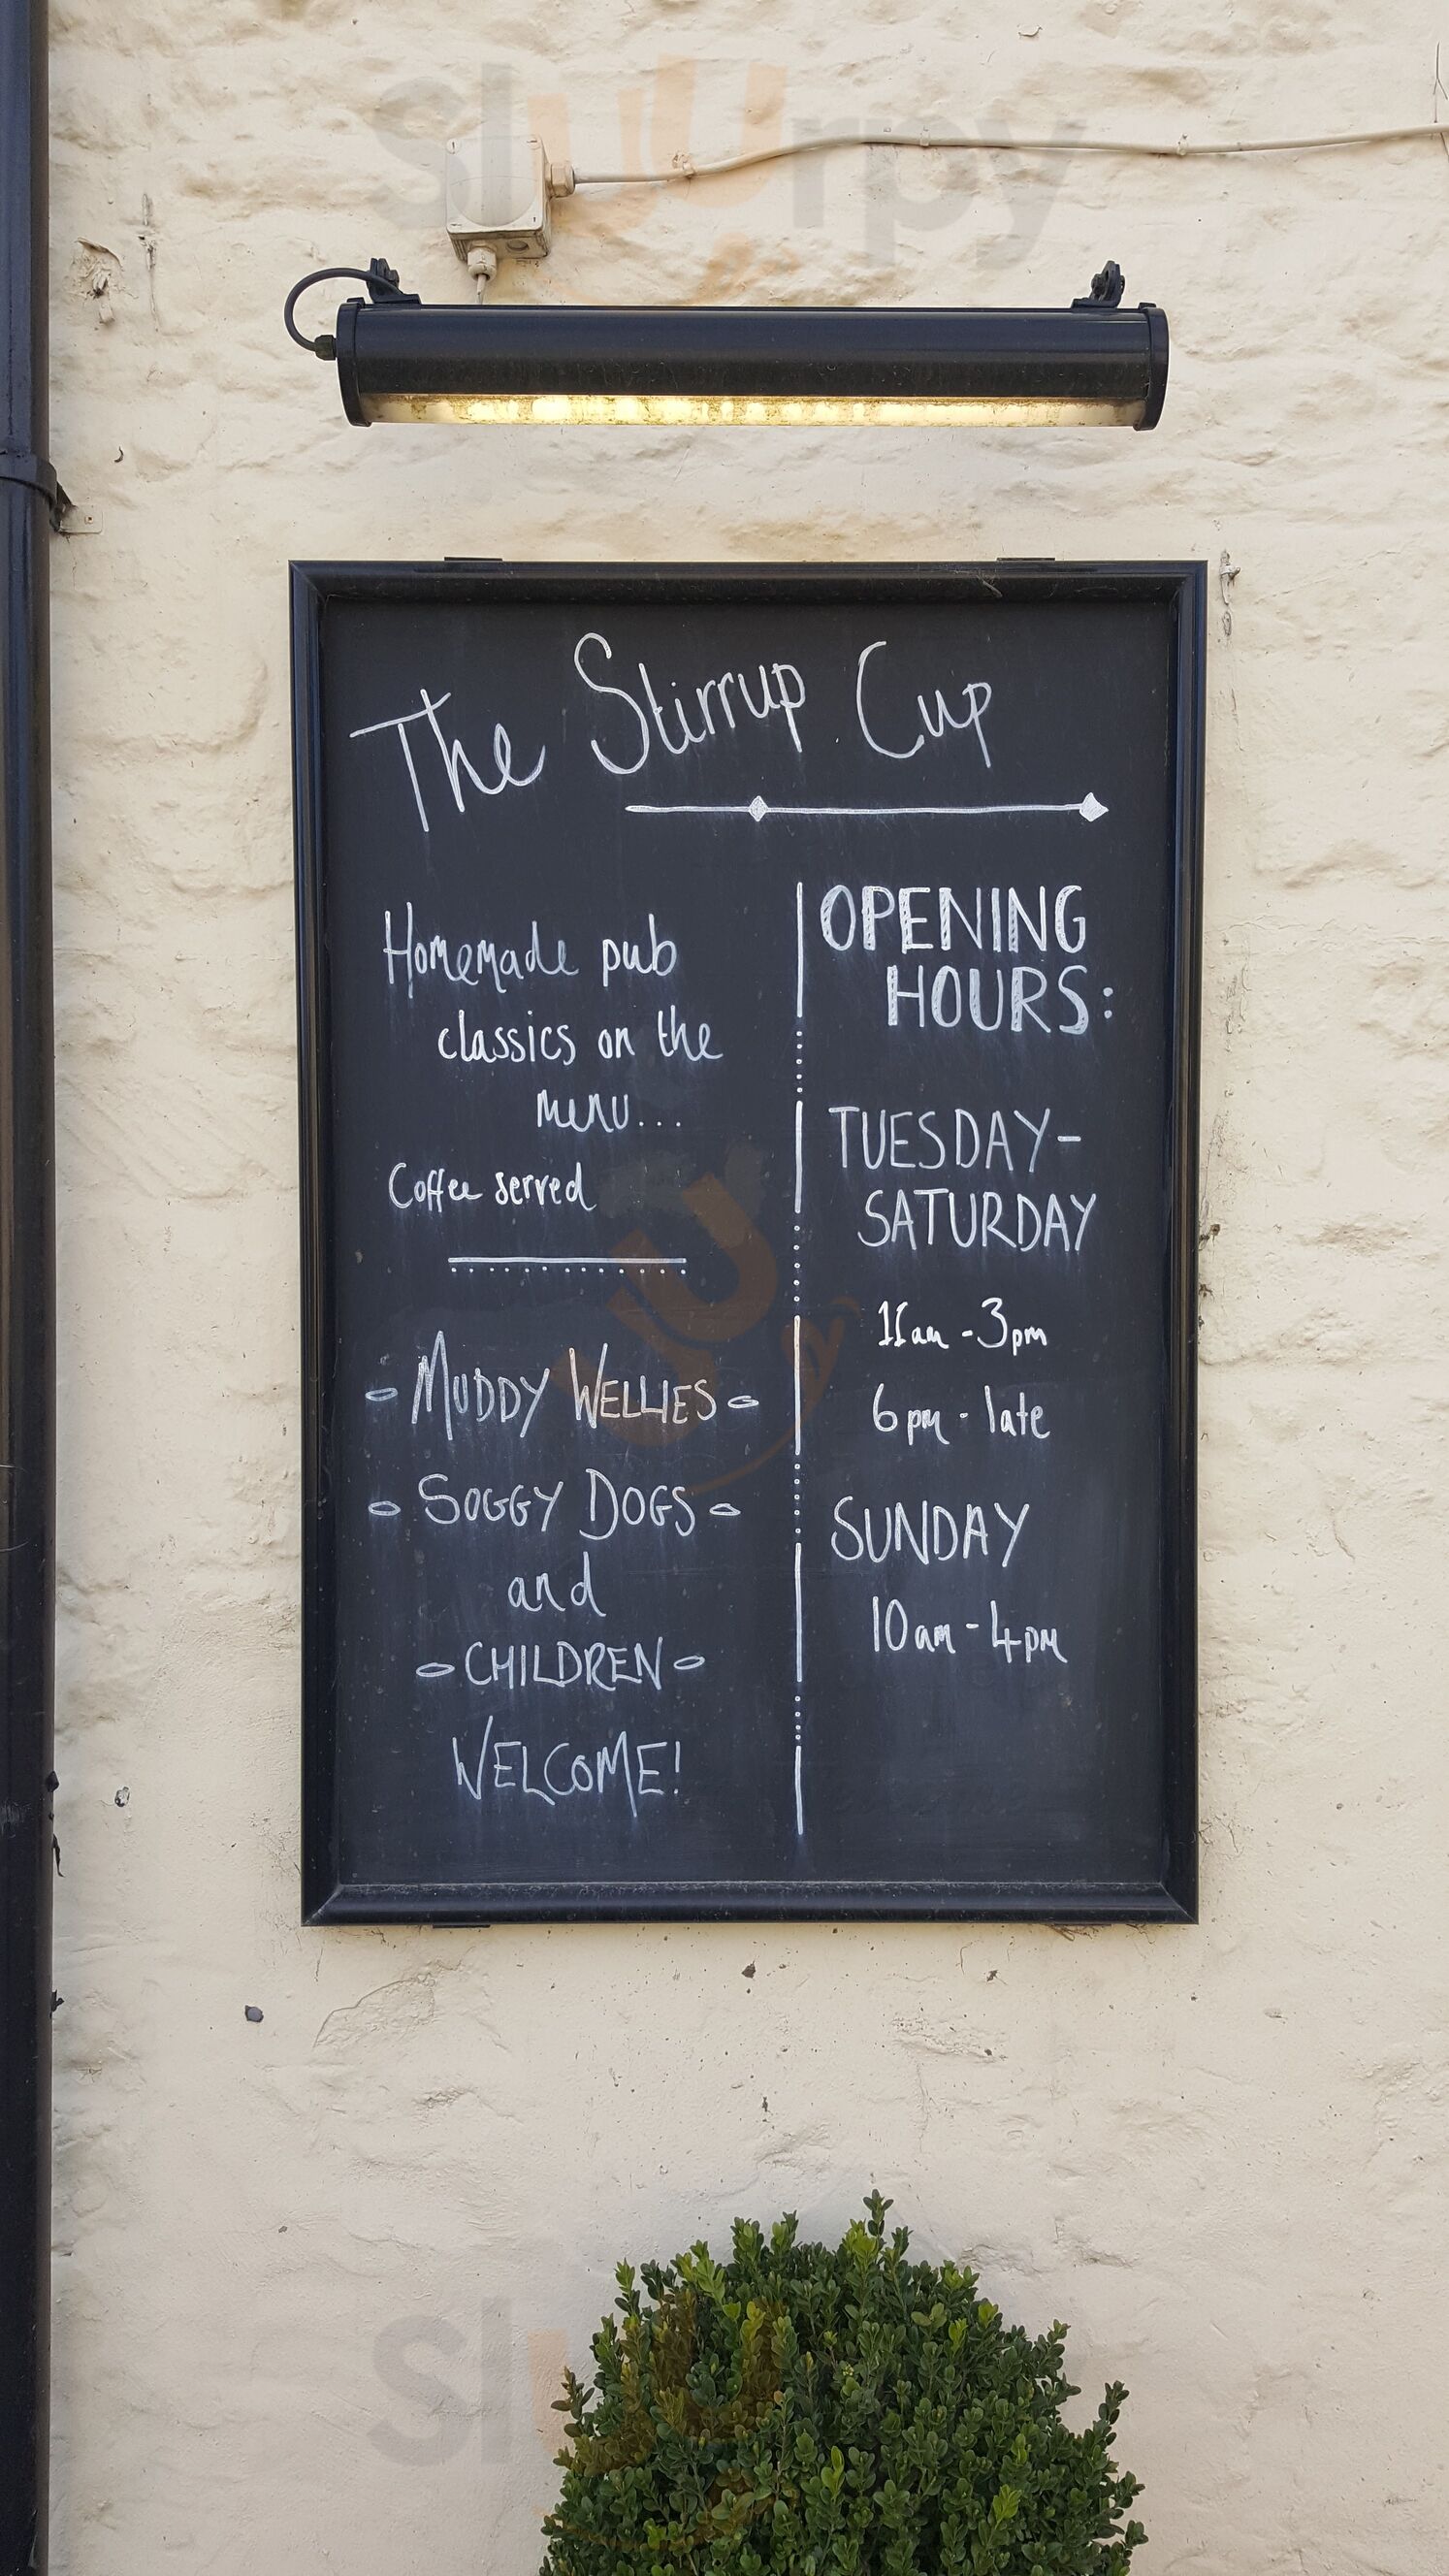 Sluurpy
The Stirrup Cup
Homemade pub
classics on the
menu...
Coffee served
- MUDDY WELLIES -
- SOGGY DOGS -
and
- CHILDREN -
WELCOME!
OPENING
HOURS:
TUESDAY-
SATURDAY
11am - 3pm
6pm - late
SUNDAY
10am - 4pm